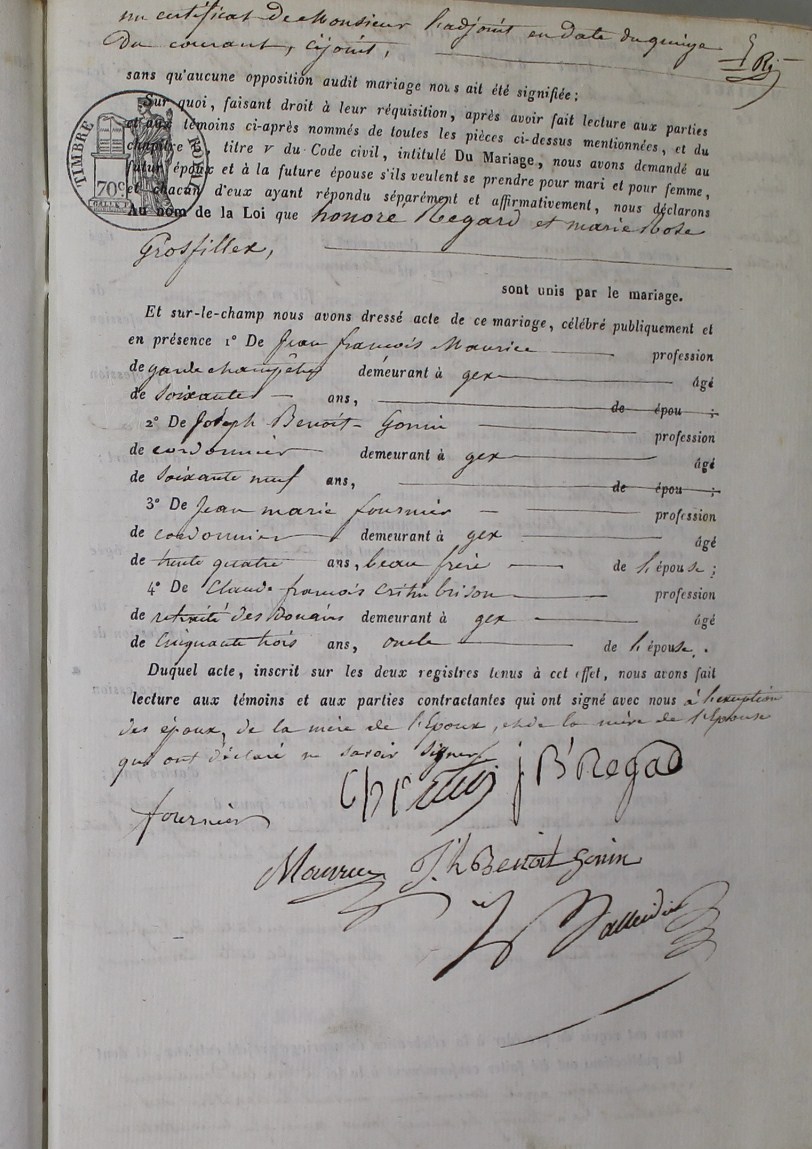 un certificat de Monsieur l'adjoint en date du quinze
Du courant, cijoint,
sans qu'aucune opposition audit mariage nous ait été signifiée;
Sur quoi, faisant droit à leur réquisition, après avoir fait lecture aux parties
et aux témoins ci-après nommés de toutes les pièces ci-dessus mentionnées, et du
chapitre, titre V du Code civil, intitulé Du Mariage, nous avons demandé au
futur époux et à la future épouse s'ils veulent se prendre pour mari et pour femme,
et chacun d'eux ayant répondu séparément et affirmativement, nous déclarons
Au nom de la Loi que honore Regard et marie Rose
Grosfillex,
TIMBRE
70c
sont unis par le mariage.
Et sur-le-champ nous avons dressé acte de ce mariage, célébré publiquement et
en présence 1° De Jean françois Maurice profession
de garde champêtre demeurant à gex âgé
de soixante ans, de épou ;
2° De Joseph Benoit Gonin profession
de cordonnier demeurant à gex âgé
de soixante neuf ans, de épou ;
3° De Jean marie fournier profession
de cordonnier demeurant à gex âgé
de trente quatre ans, beau frère de l'épouse ;
4° De Claude françois brison profession
de retraité des Douanes demeurant à gex âgé
de Cinquante trois ans, oncle de l'épouse.
Duquel acte, inscrit sur les deux registres tenus à cet effet, nous avons fait
lecture aux témoins et aux parties contractantes qui ont signé avec nous à l'exception
des époux, de la mère de l'Epoux, et de la mère de l'Epouse
qui ont déclaré ne savoir signer
j B Regad
fournier
Maurice Jh Benoit Gonin